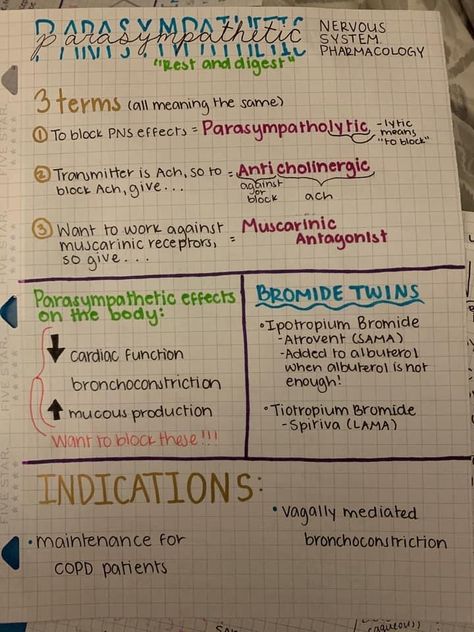 PARASYMPATHETIC
parasympathetic
NERVOUS
SYSTEM
PHARMACOLOGY
"Rest and digest"
3 terms (all meaning the same)
① To block PNS effects = Parasympatholytic
-lytic
means
"to block"
② Transmitter is Ach, so to = Anticholinergic
block Ach, give...
against
or
block
ach
③ Want to work against = Muscarinic
muscarinic receptors, Antagonist
so give...
Parasympathetic effects
on the body:
↓ cardiac function
bronchoconstriction
↑ mucous production
Want to block these!!!
BROMIDE TWINS
• Ipotropium Bromide
- Atrovent (SAMA)
- Added to albuterol
when albuterol is not
enough!
• Tiotropium Bromide
- Spiriva (LAMA)
INDICATIONS:
• maintenance for
COPD patients
• vagally mediated
bronchoconstriction
FIVE STAR
FIVE STAR
FIVE STAR
FIVE STAR
(aqueous)